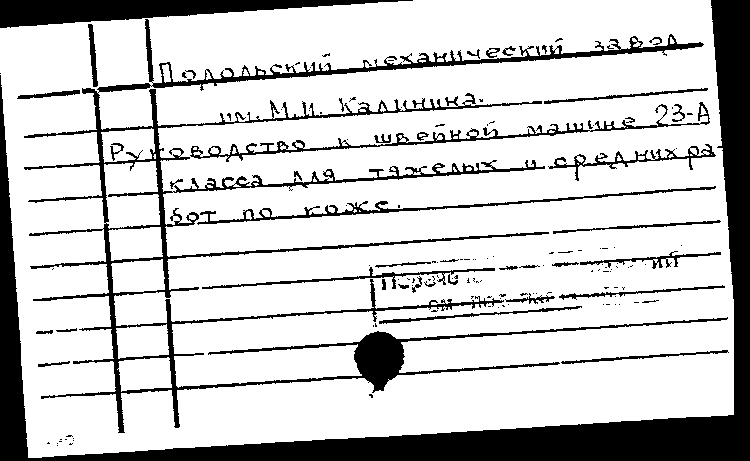 Подольский механический завод
им. М.И. Калинина.
Руководство к швейной машине 23-А
класса для тяжелых и средних ра-
бот по коже.